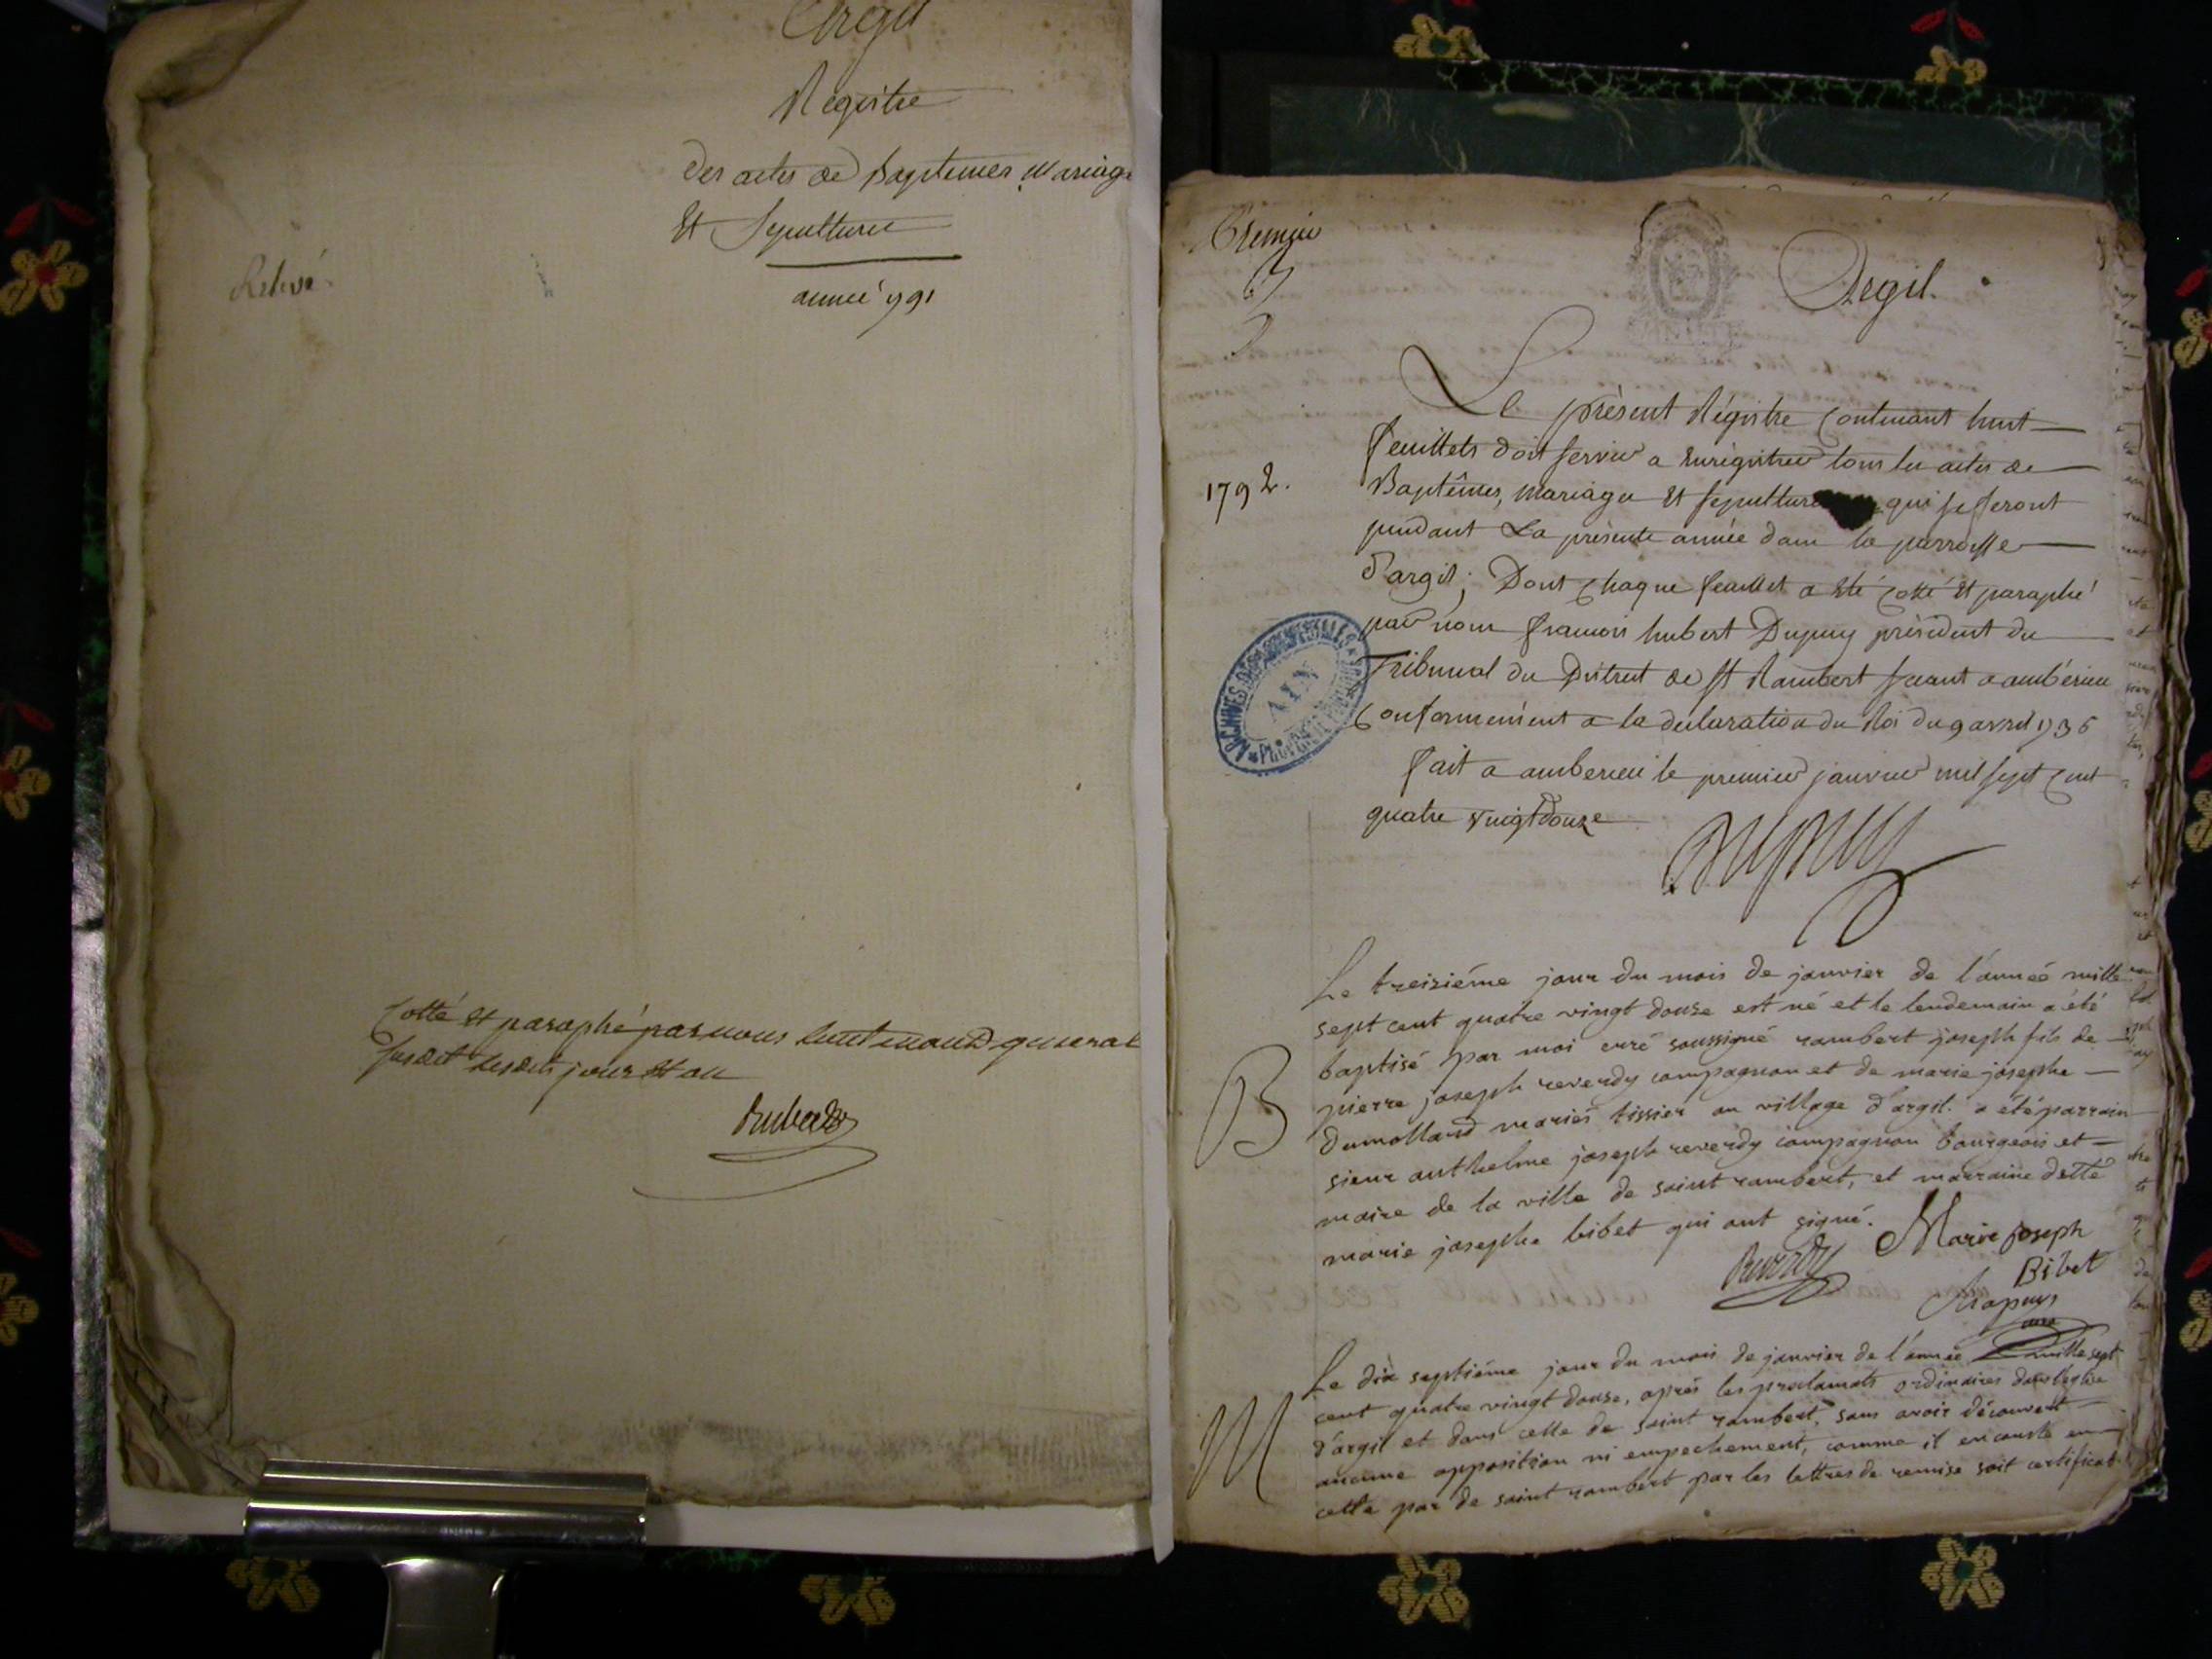 Argil
Registre
des actes de Baptemes Mariage
Et Sepultures
année 791
Relevé
Cotté et paraphé par nous lieutenant general
susdit lesdits jour et an
Premier
Argil.
Le présent Régistre Contenant huit
feuillets doit servir a Enrégistrer tous les actes de
1792.
Baptêmes, mariages Et sepultures qui se feront
pendant La présente année dans la parroisse
d'argil; Dont Chaque feuillet a Eté Cotté Et paraphé
par nous francois hubert Dupuy président du
Tribunal du District de St Rambert séant a ambérieu
Conformement a la declaration du Roi du 9 avril 1736
fait a amberieu le premier janvier mil sept Cent
quatre vingt douze
Dupuy
ARCHIVES DÉPARTEMENTALES
AIN
Le treiziéme jour du mois de janvier de l'année mille
sept cent quatre vingt douze est né et le lendemain a été
baptisé par moi curé soussigné rambert joseph fils de
B
pierre joseph reverdy compagnon et de marie josephe
dumollard mariés tissier au village d'argil. a été parrain
sieur anthelme joseph reverdy compagnon bourgeois et
maire de la ville de saint rambert, et marraine delle
marie josephe bibet qui ont signé.
Marie joseph
Bibet
Reverdy
Chapuys
curé
Le dix septiéme jour du mois de janvier de l'année mille sept
cent quatre vingt douse, aprés les proclamats ordinaires dans l'eglise
M
d'argil et dans celle de saint rambert, sans avoir découvert
aucune opposition ni empechement, comme il en conste en
cette par de saint rambert par les lettres de remise soit certificat